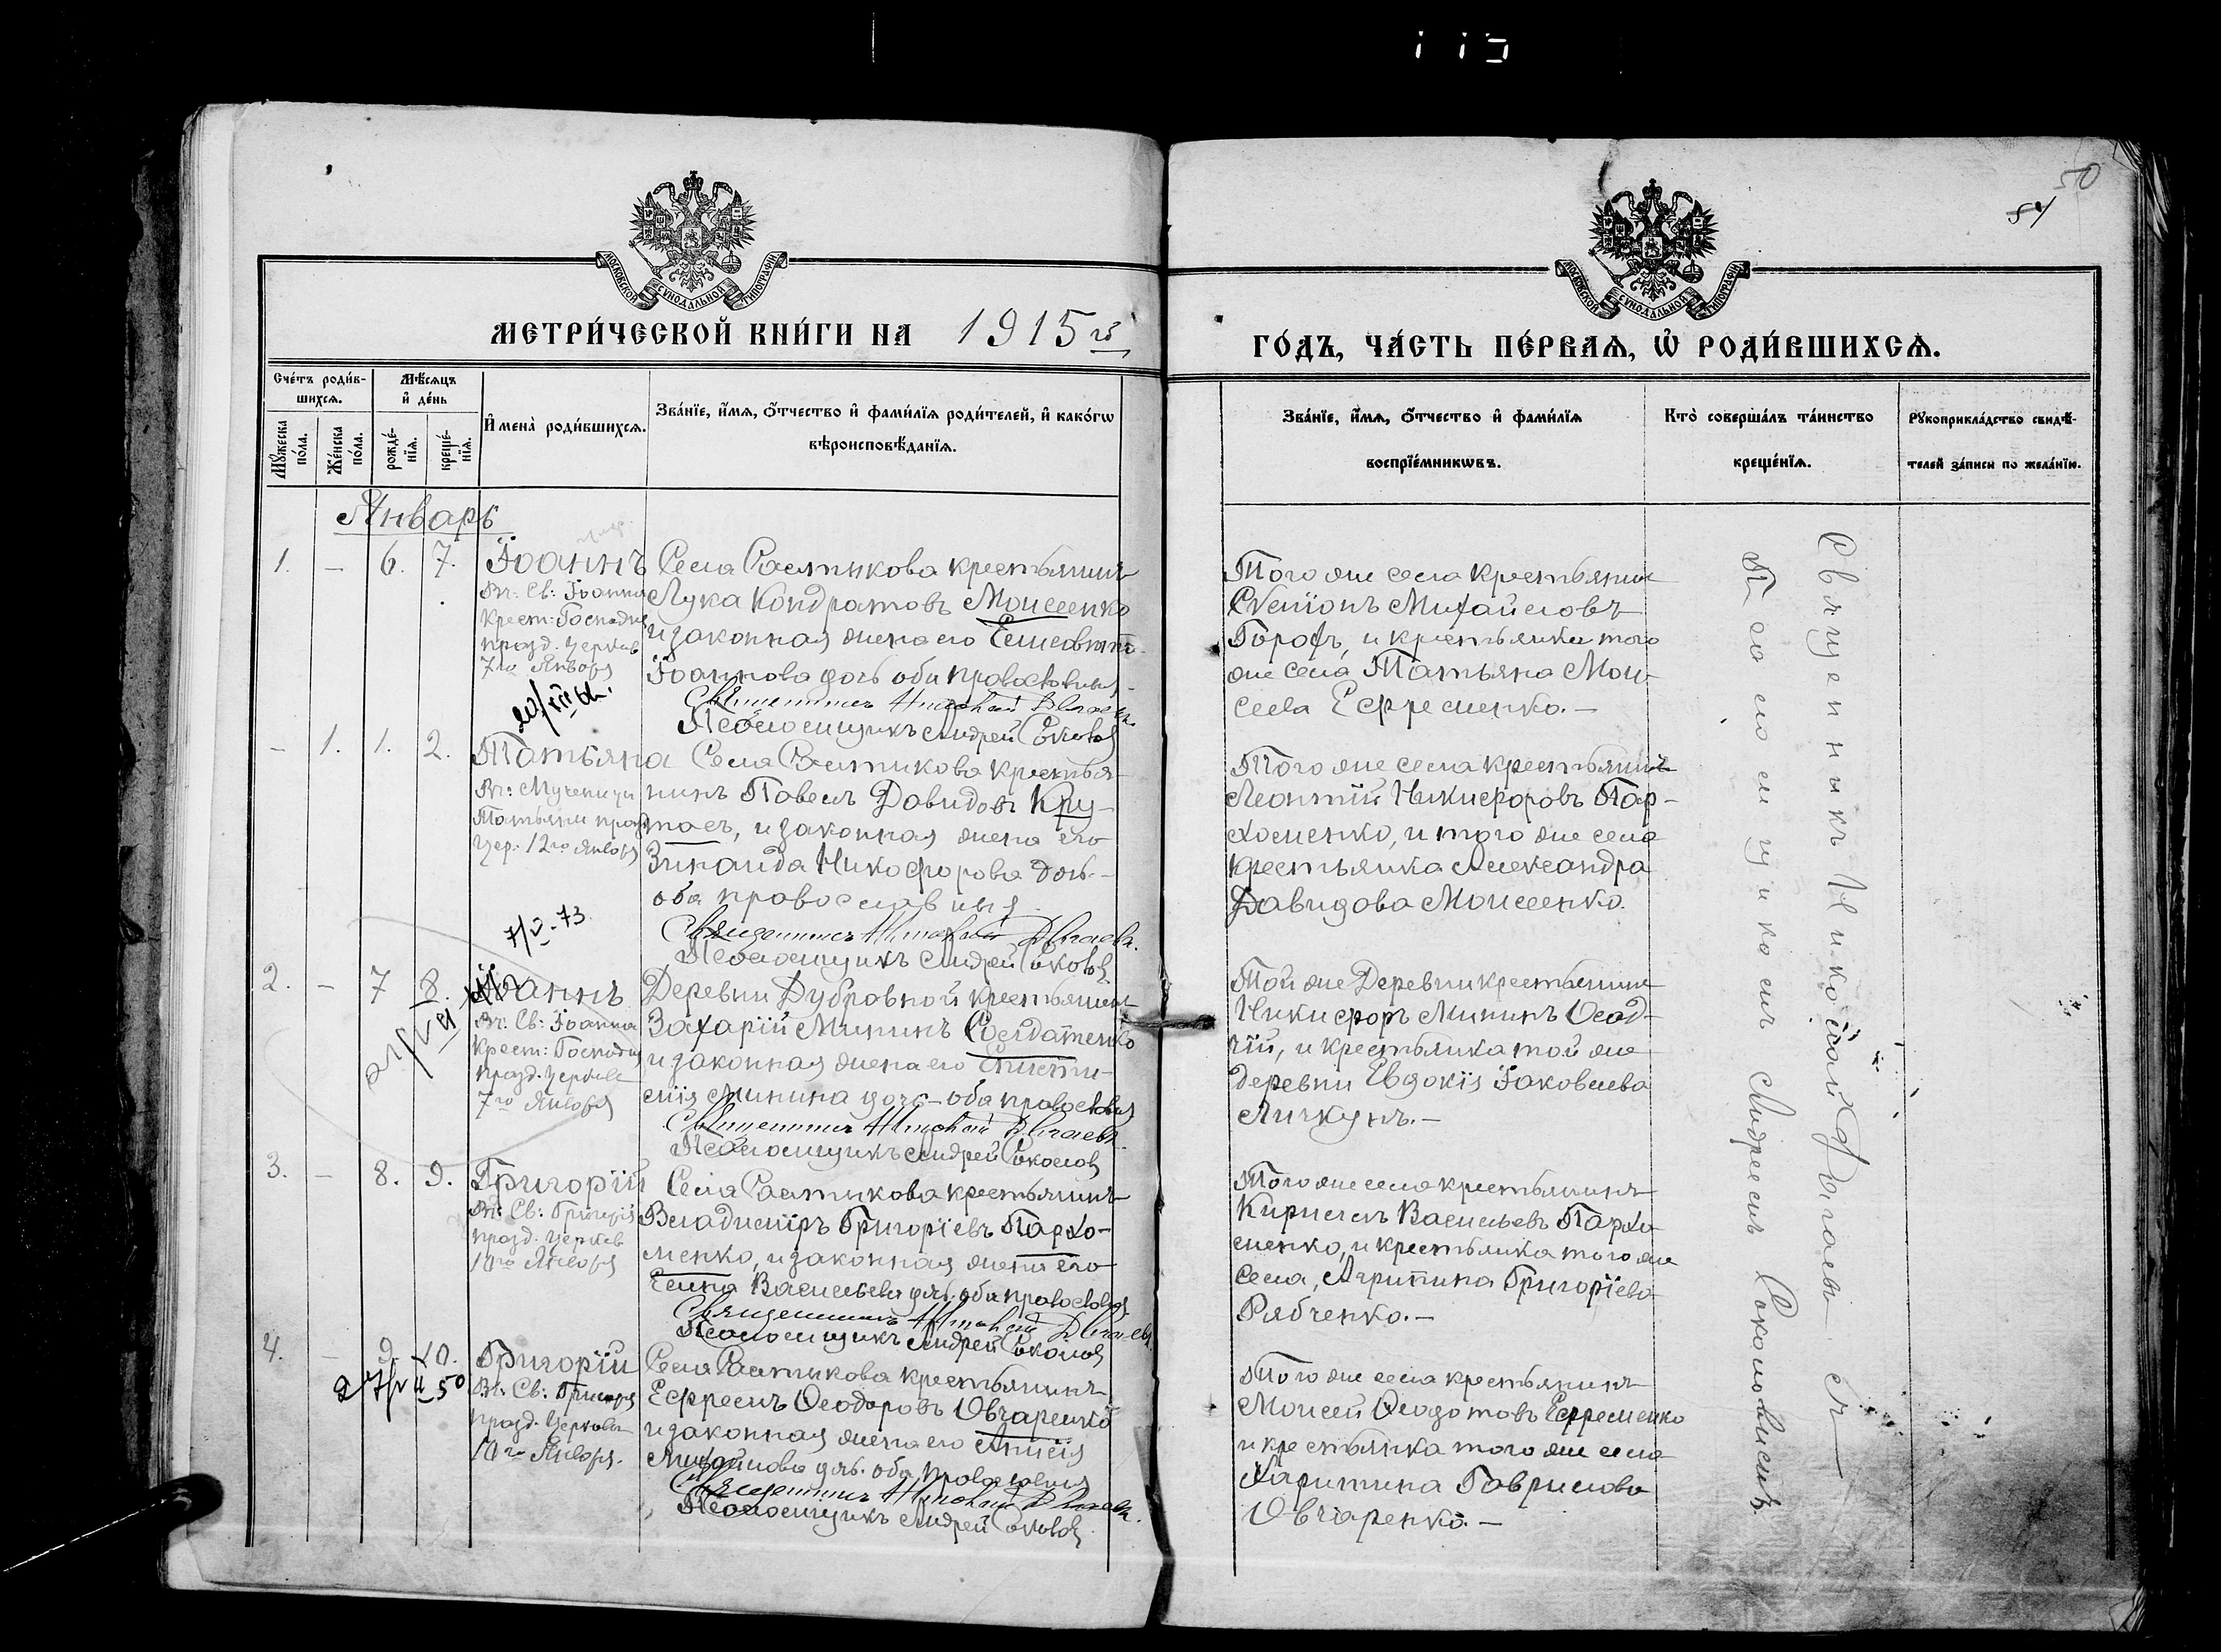 50
54
МОСКОВСКОЙ СѴНОДАЛЬНОЙ ТИПОГРАФІИ
МОСКОВСКОЙ СѴНОДАЛЬНОЙ ТИПОГРАФІИ
МЕТРИ́ЧЕСКОЙ КНИ́ГИ НА 1915 го
ГО́ДЪ, ЧА́СТЬ ПЕ́РВАѦ, Ѡ҆ РОДИ́ВШИХСѦ.
Сче́тъ роди́в-
шихсѧ.
Мꙋ́жеска по́ла.
Же́нска по́ла.
Мѣ́сѧцъ
и҆ де́нь
рожде́-
нїѧ.
креще́-
нїѧ.
И҆мена̀ роди́вшихсѧ.
Зва́нїе, и҆́мѧ, ѻ҆́тчество и҆ фами́лїѧ роди́телей, и҆ како́гѡ
вѣроисповѣ́данїѧ.
Зва́нїе, и҆́мѧ, ѻ҆́тчество и҆ фами́лїѧ
воспрїе́мникѡвъ.
Кто̀ соверша́лъ та́инство
креще́нїѧ.
Рꙋкоприкла́дство свидѣ́-
телей за́писи по жела́нїю.
Январь
1. – 6. 7. Іоаннъ
Вч: Св: Іоанна
Крест: Господня
празд. Церков
7го Января
Села Растикова крестьянинъ
Лука Кондратовъ Моисеенко
и законная жена его Елисавета
Іоаннова дочь оба православныя
Священникъ Николай Дыгаевъ.
Псаломщикъ Андрей Соколов
Того же села крестьянинъ
Симіонъ Михайловъ
Горохъ, и крестьянка того
же села Татьяна Мои-
сеева Ефременко. –
– 1. 1. 2. Татьяна
Вч: Мученицы
Татьяны празд
Цер: 12го Января
7/V-73.
Села Растикова крестья-
нинъ Павелъ Давидовъ Кру-
таевъ, и законная жена его
Зинаида Никифорова дочь –
оба православныя
Священникъ Николай Дыгаевъ.
Псаломщикъ Андрей Соколов
Того же села крестьянинъ
Леонтій Никифоровъ Пар-
хоменко, и того же села
крестьянка Александра
Давидова Моисеенко.
2. – 7 8. Іоаннъ
Вч: Св: Іоанна
Крест: Господня
празд. Церкове
7го Января
Деревни Дубровной крестьянинъ
Захарій Мининъ Солдатенко
и законная жена его Анаста-
сія Минина дочь – оба православныя
Священникъ Николай Дыгаевъ
Псаломщикъ Андрей Соколов
Той же Деревни крестьянинъ
Никифоръ Мининъ Осад-
чій, и крестьянка той же
деревни Евдокія Іаковлева
Личкунъ. –
3. – 8. 9. Григорій
Вч: Св: Григорія
празд. Церков
10го Января
Села Растикова крестьянинъ
Владиміръ Григоріевъ Пархо-
менко, и законная жена его
Елена Васильева дочь, оба православныя
Священникъ Николай Дыгаевъ
Псаломщикъ Андрей Соколов
Того же села крестьянинъ
Кириллъ Васильевъ Пархо-
менко, и крестьянка того же
села, Агрипина Григоріева
Рябченко. –
4. – 9. 10. Григорій
Вч: Св: Григорія
празд. Церкови
10го Января.
Села Растикова крестьянинъ
Ефремъ Ѳеодоровъ Овчаренко
и законная жена его Анисія
Михайлова дочь. оба православныя
Священникъ Николай Дыгаевъ.
Псаломщикъ Андрей Соколов
Того же села крестьянинъ
Моисей Ѳеодотовъ Ефременко
и крестьянка того же села
Харитина Гаврилова
Овчаренко. –
Священникъ Николай Дыгаевъ съ
Псаломщикомъ Андреемъ Соколовымъ